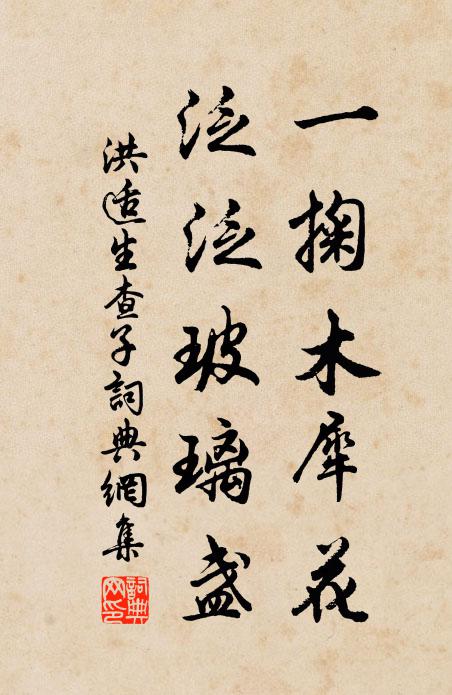 一掬木犀花
泛泛玻璃盏
洪适生查子詞典網集
詞典網印